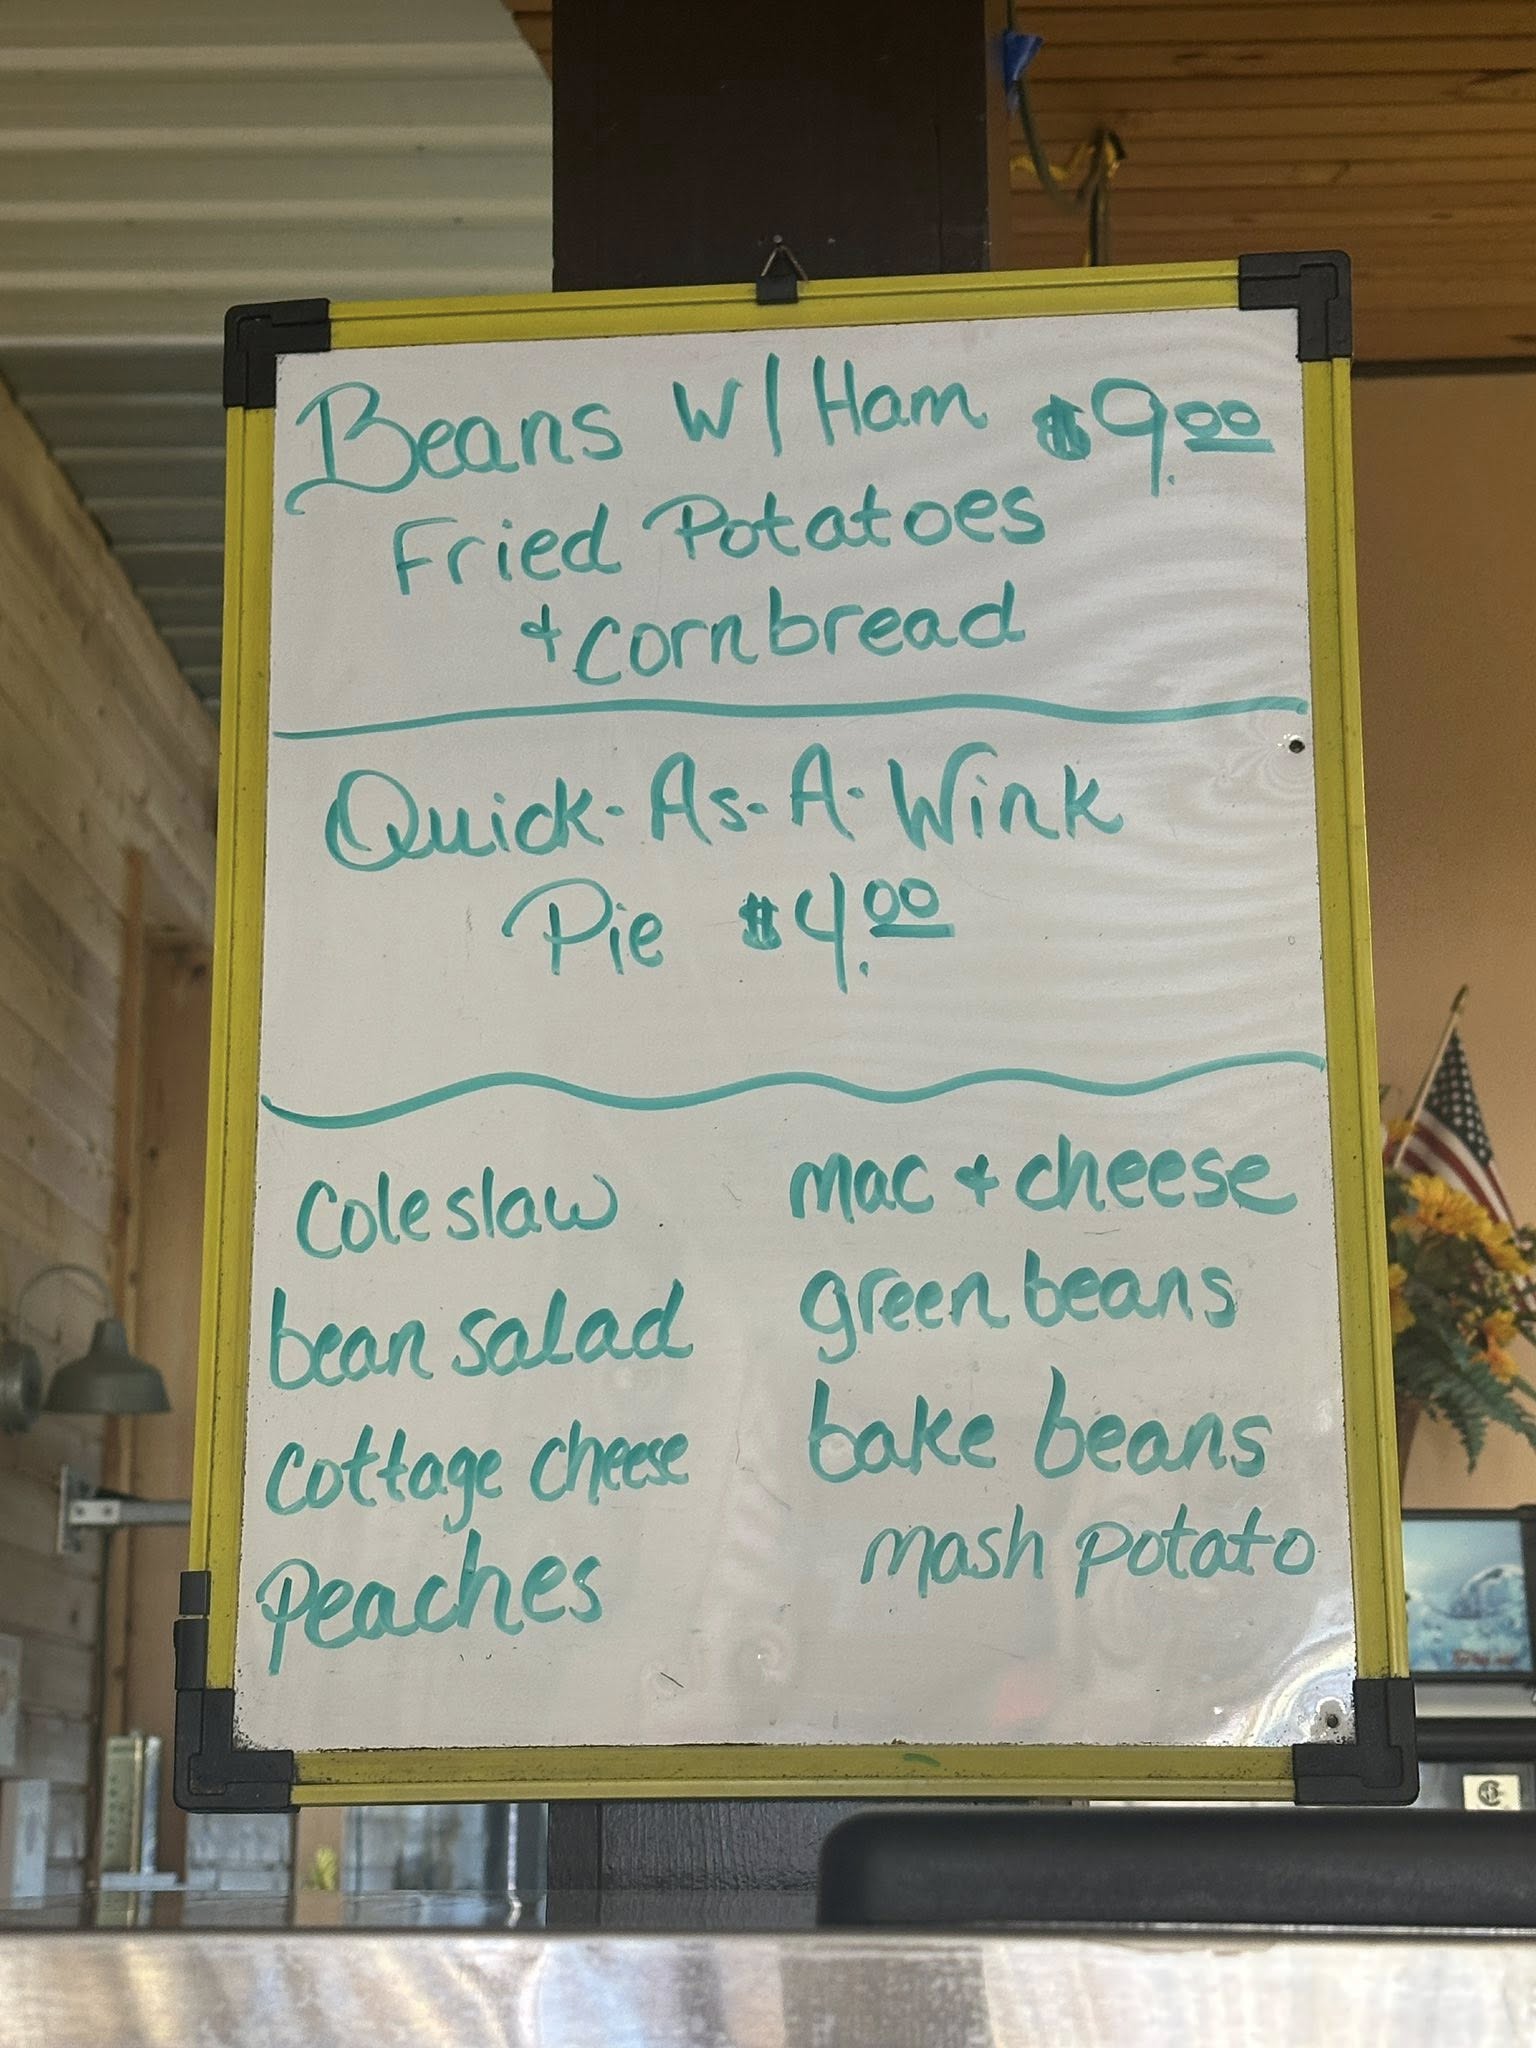 Beans w/ Ham $9.00
Fried Potatoes
+ cornbread
Quick-As-A-Wink
Pie $4.00
Coleslaw
bean salad
cottage cheese
Peaches
mac + cheese
green beans
bake beans
mash potato